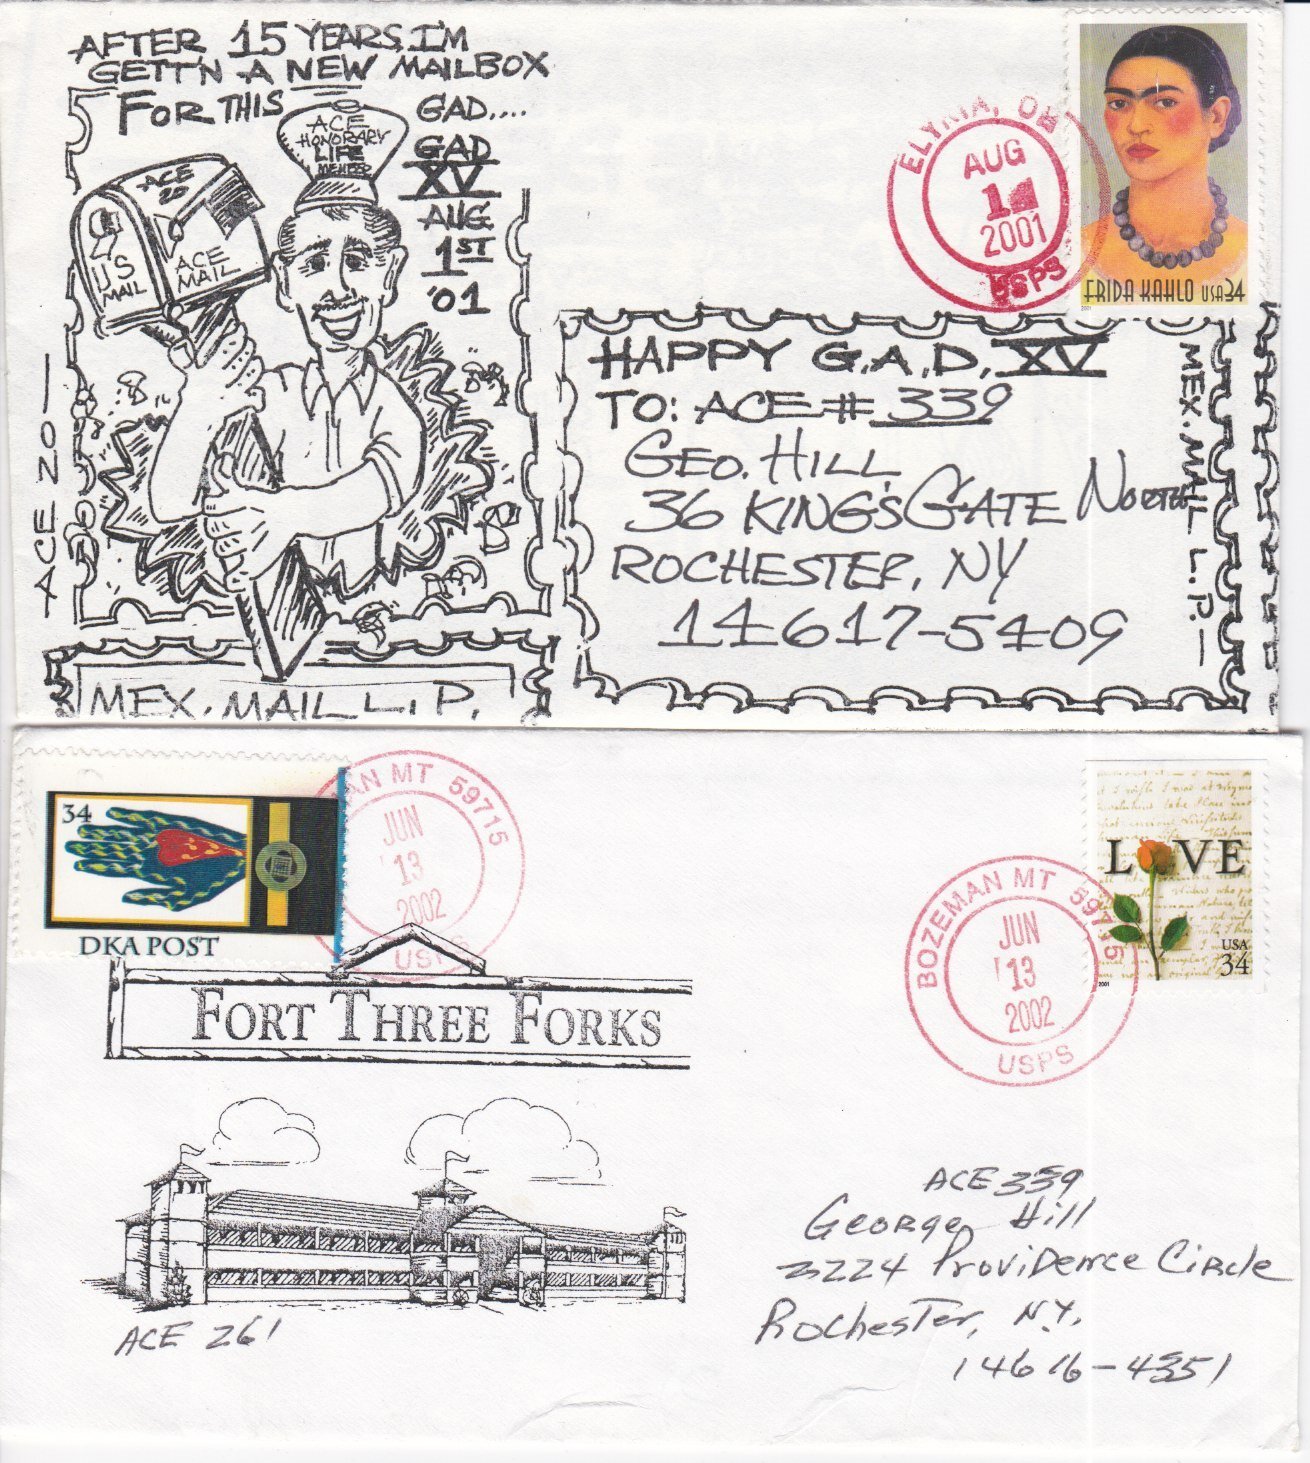 AFTER 15 YEARS, I'M
GETT'N A NEW MAILBOX
FOR THIS
GAD....
GAD
XV
AUG
1ST
'01
ACE
HONORARY
LIFE
MEMBER
ACE
20
US
MAIL
ACE
MAIL
ACE 20
MEX. MAIL L.P.
ELYRIA, OH
AUG
1
2001
USPS
FRIDA KAHLO USA 34
2001
HAPPY G.A.D. XV
TO: ACE # 339
GEO. HILL
36 KING'S GATE NORTH
ROCHESTER, NY
14617-5409
MEX. MAIL L.P.
34
DKA POST
AN MT 59715
JUN
'13
2002
USPS
FORT THREE FORKS
ACE 261
BOZEMAN MT 59715
JUN
'13
2002
USPS
LOVE
USA
34
2001
ACE 339
George Hill
3224 Providence Circle
Rochester, N.Y.
14616-4351